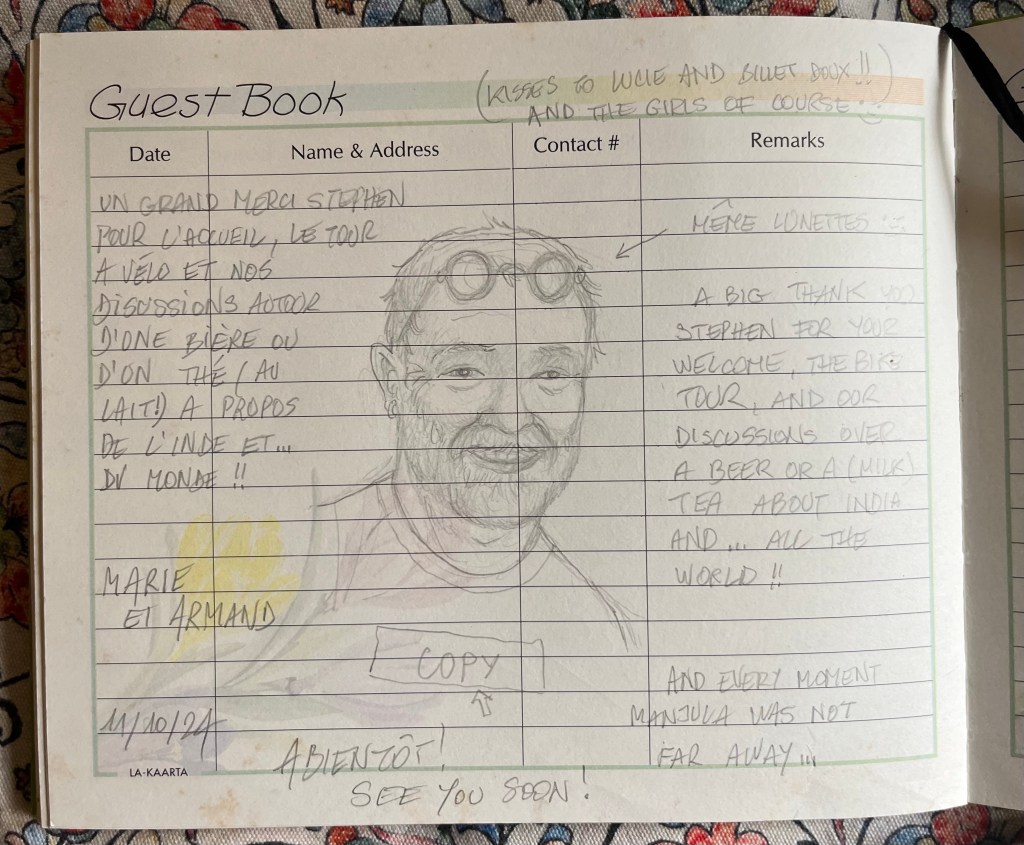 Guest Book
(KISSES TO LUCIE AND BILLET DOUX!!
AND THE GIRLS OF COURSE)
Date
Name & Address
Contact #
Remarks
UN GRAND MERCI STEPHEN
POUR L'ACCUEIL, LE TOUR
A VÉLO ET NOS
DISCUSSIONS AUTOUR
D'UNE BIÈRE OU
D'UN THÉ (AU
LAIT!) A PROPOS
DE L'INDE ET...
DU MONDE !!
MARIE
ET ARMAND
11/10/24
MÊME LUNETTES
A BIG THANK YOU
STEPHEN FOR YOUR
WELCOME, THE BIKE
TOUR, AND OUR
DISCUSSIONS OVER
A BEER OR A (MILK)
TEA ABOUT INDIA
AND... ALL THE
WORLD !!
AND EVERY MOMENT
MANJULA WAS NOT
FAR AWAY...
COPY
A BIENTÔT!
SEE YOU SOON!
LA-KAARTA